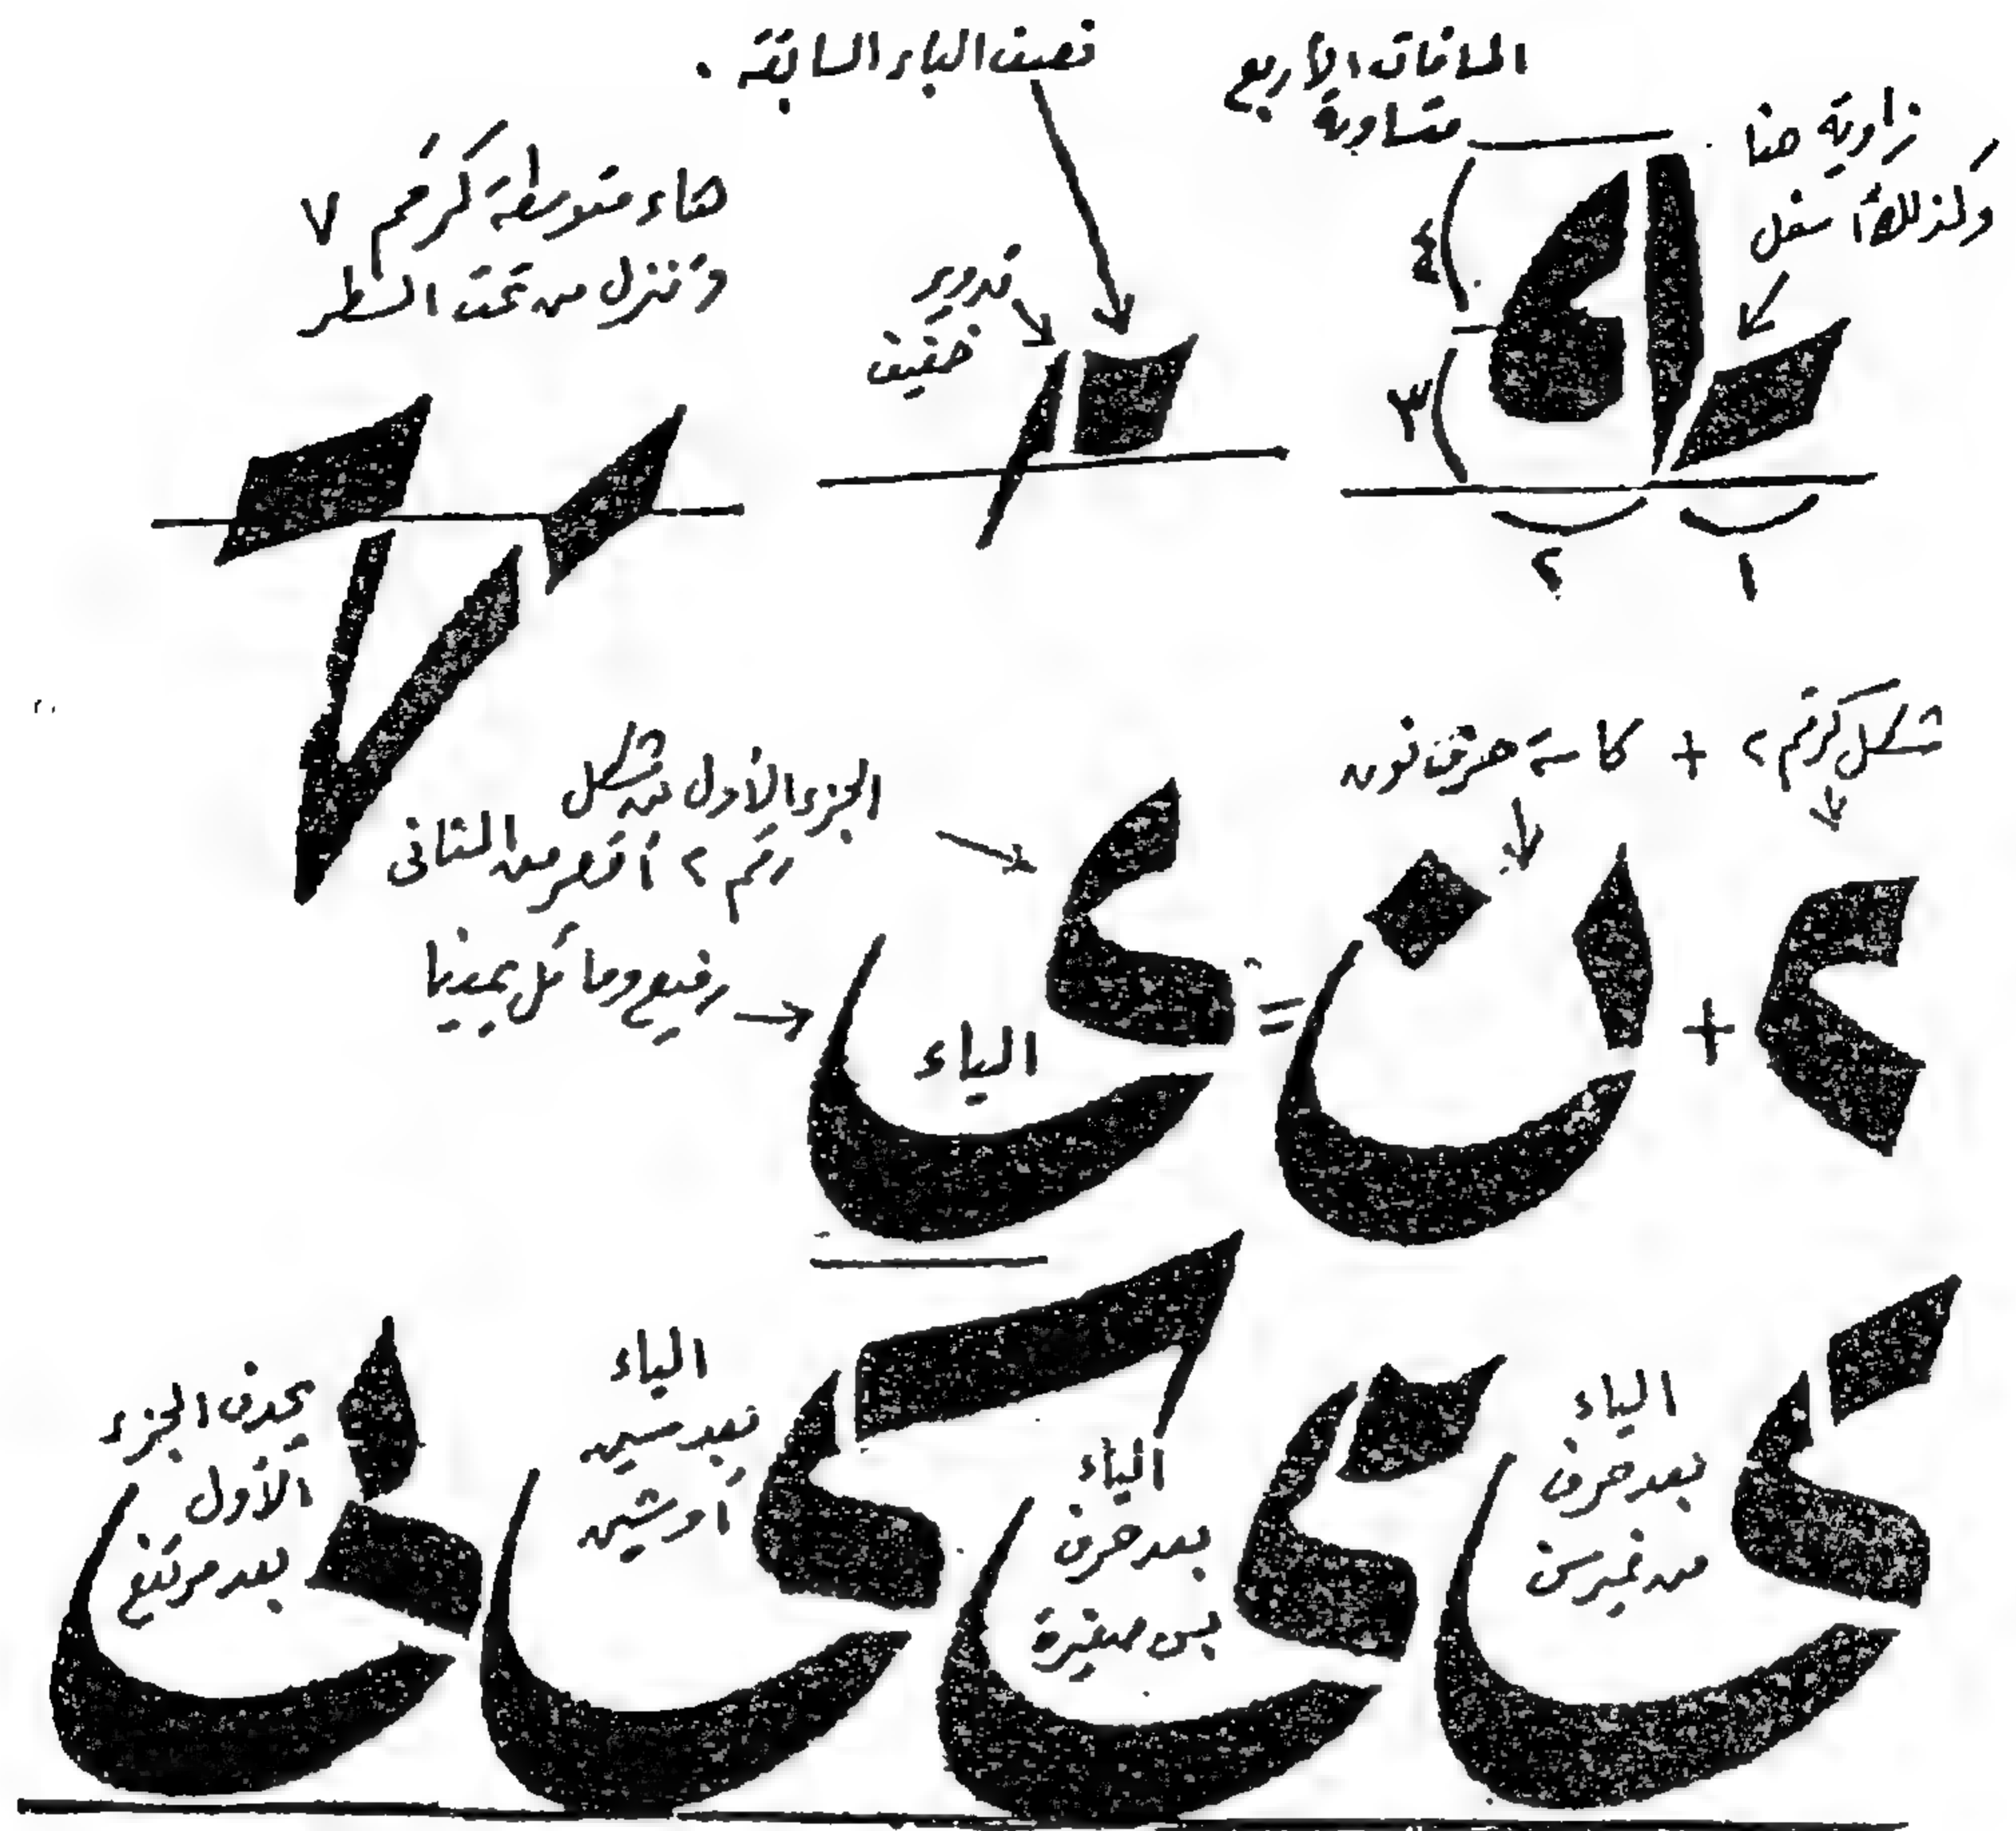 نصف الباء السابقة .
المسافات الأربع
متساوية
زاوية هنا
وكذلك أسفل
٤
٣
٢
١
تدوير
خفيف
هاء متوسطة كرقم ٧
وتنزل من تحت السطر
شكل كرقم ٢ + كاسة حرف نون
الجزء الأول من شكل
رقم ٢ أقصر من الثانى
رفيع ومائل يمينا
ى = ن + ٢
الياء
الياء
بعد حرف
من غير سن
الياء
بعد حرف
بسن صغيرة
الياء
بعد سين
أو شين
يحذف الجزء
الأول
بعد مرتفع